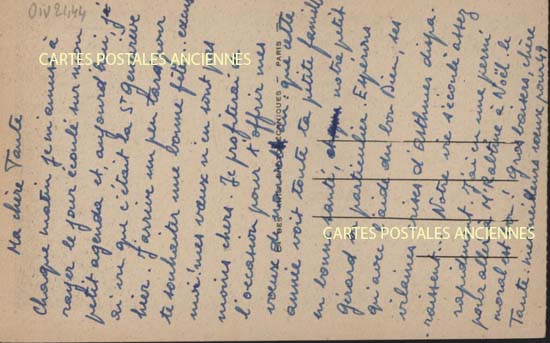 Div 2444
CARTES POSTALES ANCIENNES
CARTES POSTALES ANCIENNES
Ma chère Tante
Chaque matin je m'amuse à
rayer le jour écoulé sur mon
petit agenda et, aujourd'hui, je
ai vu que c'était la Ste Geneviève
hier. J'arrive un peu tard pour
te souhaiter une bonne fête; ceux
mes vœux n'en sont pas
moins chers. Je profiterai de
l'occasion pour t'offrir mes
vœux et que cette
année voit toute ta petite famille
en bonne santé, et notre petit
Gérard en particulier. Espérons
qu'avec l'aide du bon Dieu, ses
vilaines crises d'asthmes dispa-
raissent. Notre vie s'écoule assez
rapidement. J'ai eu une permi
pour aller à à Noël. Le
moral est Gros baisers, chère
Tante. meilleurs vœux pour 49
PARIS